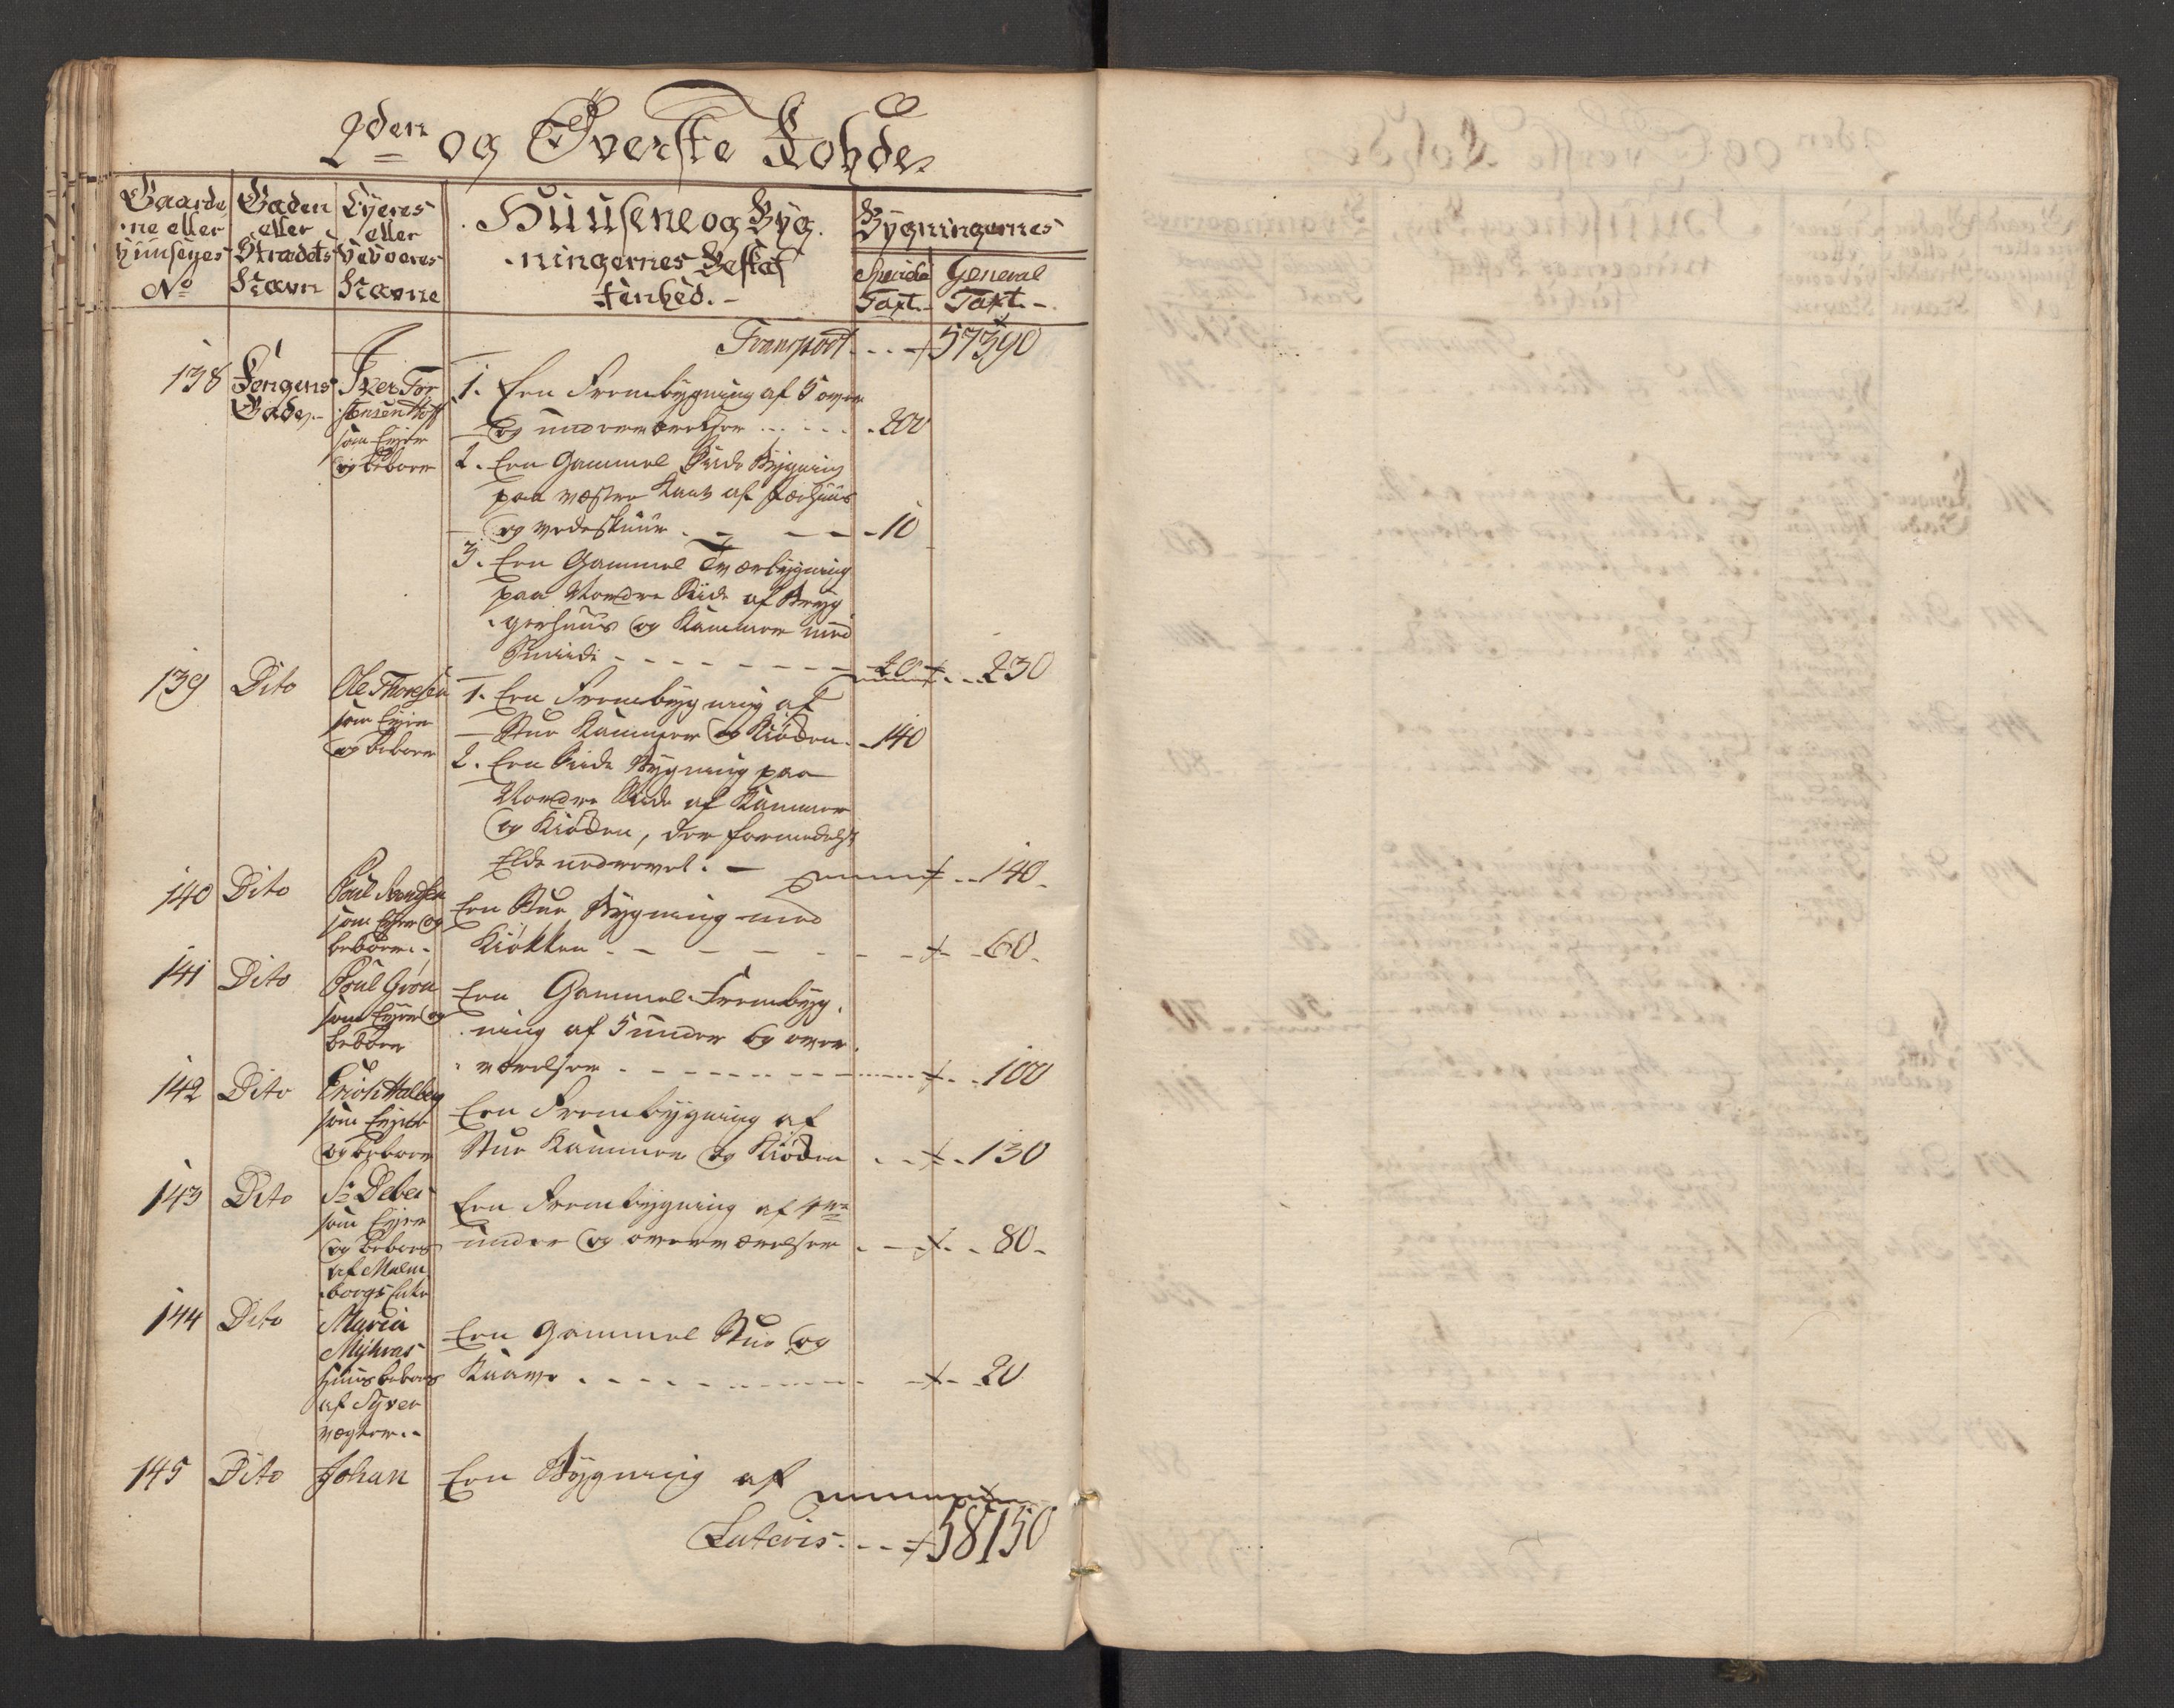 2den og Øverste Rohde
Gaarde
ne eller
Huusenes
No
Gaden
eller
Strædets
Navn
Eyeres
eller
beboeres
Navne
Huusene og Byg
ningernes Beskaf
fenhed.
Bygningernes
Speciale
Taxt
General
Taxt
Transport 57390
138 Kongens Gade Iver Tor
stensen Hoff
som Eyer
og beboer
1. Een Frembygning af 5 over
og underværelser 200
2. Een Gammel Side Bygning
paa vestre Kant af Fæehuus
og vedeskuur 10
3. Een Gammel Tværbygning
paa Nordre Side af Bryg
gerhuus og Kammer med
20 230
139 Dito Ole Thoresen
som Eyer
og beboer
1. Een Frembygning af
Stue Kammer og Kiøcken 140
2. Een Side Bygning paa
Nordre Side af Kammer
og Kiøcken, der formedelst
Elde nedrevet. 140
140 Dito Poul
som Eyer og
beboer
Een Stue Bygning med
Kiøkken 60
141 Dito Poul Grøn
som Eyer og
beboer
Een Gammel Frembyg
ning af 5 under og over
værelser 100
142 Dito Erich Halberg
som Eyer
og beboer
Een Frembygning af
Stue Kammer og Kiøcken 130
143 Dito Sr Debes
som Eyer
og beboes
af Malm
borgs Enke
Een Frembygning af 4re
under og overværelser 80
144 Dito Maria
Myhras
huus beboes
af Syver
vegter
Een Gammel Stue og
Kaave 20
145 Dito Johan Een Bygning af
Lateris 58150